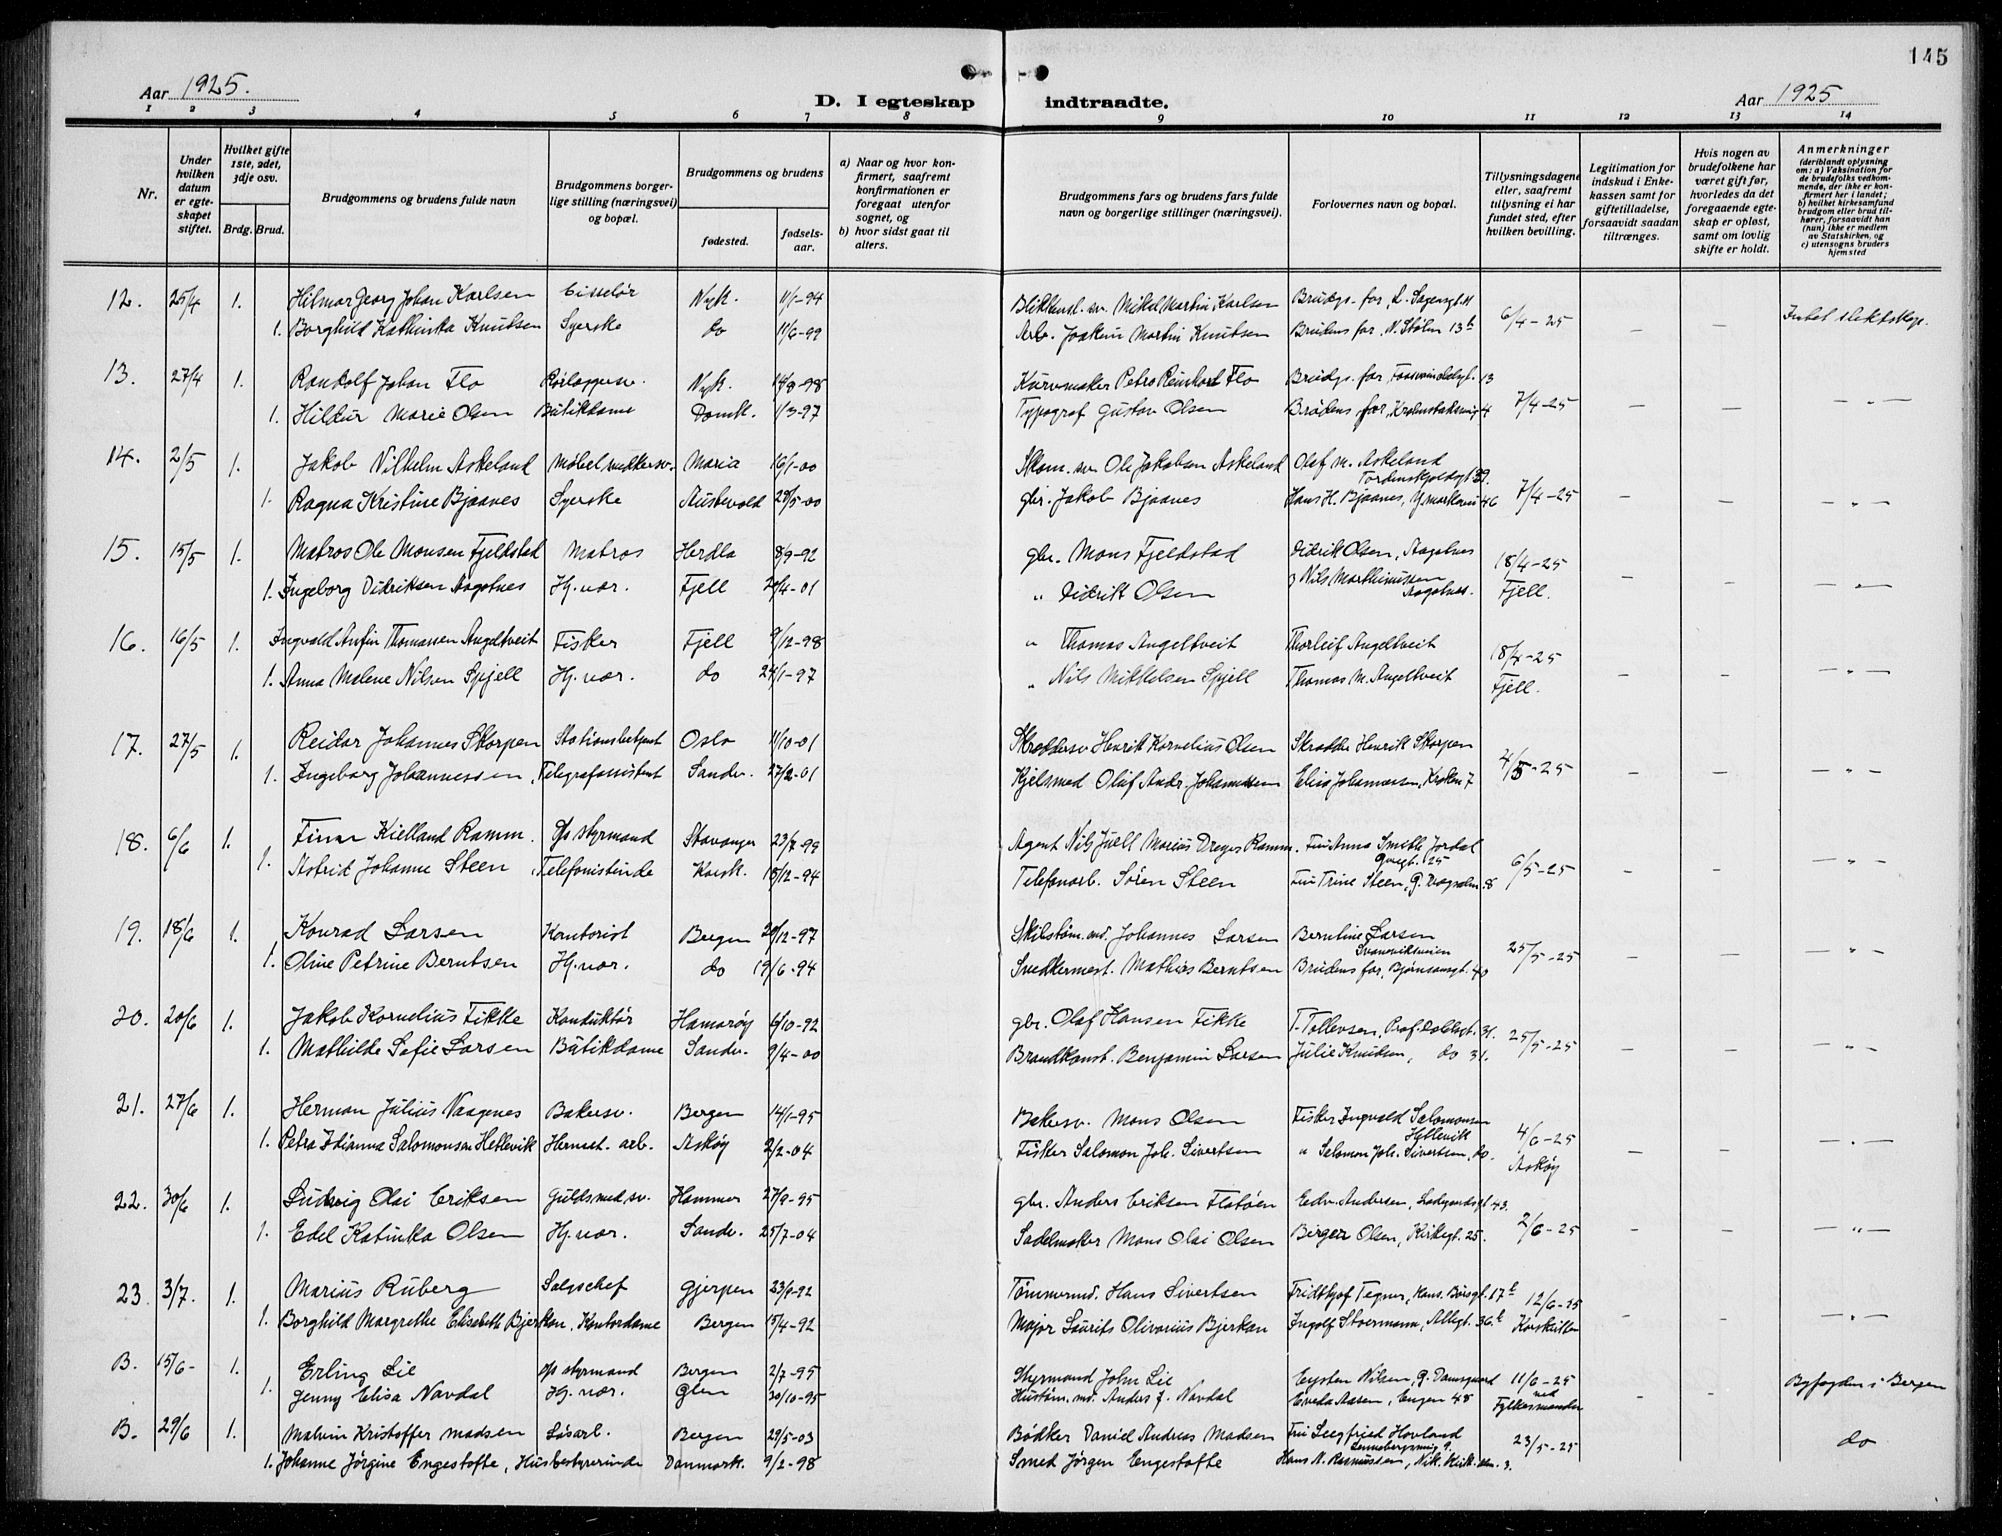 145
Aar 1925.
D. I egteskap indtraadte.
Aar 1925
1 2 3 4 5 6 7 8 9 10 11 12 13 14
Nr.
Under hvilken datum er egteskapet stiftet.
Hvilket gifte 1ste, 2det, 3dje osv.
Brdg. Brud.
Brudgommens og brudens fulde navn
Brudgommens borgerlige stilling (næringsvei) og bopæl.
Brudgommens og brudens
fødested.
fødselsaar.
a) Naar og hvor konfirmert, saafremt konfirmationen er foregaat utenfor sognet, og
b) hvor sidst gaat til alters.
Brudgommens fars og brudens fars fulde navn og borgerlige stillinger (næringsvei).
Forlovernes navn og bopæl.
Tillysningsdagene eller, saafremt tillysning ei har fundet sted, efter hvilken bevilling.
Legitimation for indskud i Enkekassen samt for giftetilladelse, forsaavidt saadan tiltrænges.
Hvis nogen av brudefolkene har været gift før, hvorledes da det foregaaende egteskap er opløst, samt om lovlig skifte er holdt.
Anmerkninger
(deriblandt oplysning om: a) Vaksination for de brudefolks vedkommende, der ikke er konfirmert her i landet; b) hvilket kirkesamfund brudgom eller brud tilhører, forsaavidt han (hun) ikke er medlem av Statskirken, og c) utensogns bruders hjemsted
12. 25/4 1. Hilmar Georg Johan Karlsen Ciselør Nyk. 11/1-94 Blikkensl. sv. Mikal Martin Karlsen Brudgs. far, L. Sagensgt. 11 6/4-25 — — Intet slektskap.
1. Borghild Kathinka Knutsen Syerske do 11/6-99 Arb. Joakim Martin Knutsen Brudens far, N. Stølen 13b
13. 27/4 1. Randolf Johan Flo Rørleggersv. Nyk. 14/9-98 Kurvmaker Petro Reinhart Flo Brudgs. far, 13 7/4-25 — — — " —
1. Hildur Marie Olsen Butikdame Domk. 1/3-97 Typograf Gustav Olsen Brudens far, 4
14. 2/5 1. Jakob Vilhelm Askeland Møbelsnekkersv. Maria 16/1-00 Skom. sv. Ole Jakobsen Askeland Olaf M. Askeland Tordenskjoldsgt. 39. 7/4-25 — — — " —
1. Ragna Kristine Bjaanes Syerske Austevold 29/5-00 gbr. Jakob Bjaanes Hans H. Bjaanes, Y. markevei 46
15. 15/5 1. Matros Ole Monsen Fjeldstad Matros Herdla 8/9-92 gbr. Mons Fjeldstad Didrik Olsen, Aagotnes 18/4-25 — — — " —
1. Ingeborg Didriksen Aagotnes Hj. vær. Fjell 20/4-01 " Didrik Olsen Nils Marthinussen Aagotnes. Fjell.
16. 16/5 1. Ingvald Arfin Thomassen Angeltveit Fisker Fjell 9/12-98 " Thomas Angeltveit Thorleif Angeltveit 18/4-25 — — — " —
1. Anna Malene Nilsen Spjell Hj. vær. do 24/1-97 " Nils Mikkelsen Spjell Thomas M. Angeltveit Fjell.
17. 27/5 1. Reidar Johannes Skorpen Stationsbetjent Oslo 11/10-01 Skreddersv Henrik Kornelius Olsen Skredder Henrik Skorpen 4/5-25 — — — " —
1. Ingeborg Johannessen, Telegrafassistent Sandv. 27/2-01 Kjelsmed Olaf Andr. Johannessen Elisa Johannessen, Kroken 7
18. 6/6 1. Finn Kielland Ramm. o/s styrmand Stavanger 23/7-99 Agent Nils Juell Marius Dreyer Ramm. Fru Anna Smith Jordal 25 6/5-25 — — — " —
1. Astrid Johanne Steen, Telefonistinde Korsk. 15/12-94 Telefonarb. Søren Steen Fru Trine Steen, 8
19. 18/6 1. Konrad Larsen Kontorist Bergen 20/12-97 Johannes Larsen Berntine Larsen Svaneviksveien 25/5-25 — — — " —
1. Oline Petrine Berntsen Hj. vær. do 19/6-94 Snedkermest. Mathias Berntsen Brudens far, Bjørnsonsgt. 40
20. 20/6 1. Jakob Kornelius Fikke Konduktør Hamarøy 6/10-92 gbr. Olaf Hansen Fikke T. Tollevsen, Prof. Dahlsgt. 31. 25/5-25 — — — " —
1. Mathilde Sofie Larsen Butikdame Sandv. 9/4-00 Brandkonst. Benjamin Larsen Julie Knudsen, do 31.
21. 27/6 1. Herman Julius Vaagenes Bakersv. Bergen 14/1-95 Bakersv. Mons Olsen Fisker Ingvald Salomonsen Hettevik 4/6-25 — — — " —
1. Petra Salomonsen Hettevik Hermet. arb. Askøy 2/2-04 Fisker Salomon Joh. Sivertsen " Salomon Joh. Sivertsen, do. Askøy
22. 30/6 1. Ludvig Olai Eriksen Guldsmed sv. Hammer 27/9-95 gbr. Anders Eriksen Flatøen Edv. Andersen, Ladegaardsgt 43. 2/6-25 — — — " —
1. Edel Katinka Olsen Hj. vær. Sandv. 25/7-04 Sadelmaker Mons Olai Olsen Birger Olsen, Kirkegt. 25.
23. 3/7. 1. Marius Ruberg Salgschef Gjerpen 23/9-92 Tømmermd. Hans Sivertsen Fridthjof Tegner, 17b 12/6-25 — — — " —
1. Borghild Margrethe Elisabeth Bjerkan, Kontordame Bergen 15/4-92 Major Laurits Olivarius Bjerkan Ingolf Stoermann, Allégt. 36b Korskirken
B. 15/6- 1. Erling Lie o/s styrmand Bergen 2/7-95 Styrmand John Lie Eysten Nilsen, G. Damsgaard 11/6-25 — — Byfogden i Bergen
1. Jenny Elisa Navdal Hj. vær. Glen 30/10-95 Hustøm. md. Anders J. Navdal Eveda Aasen, Engen 48 ved Fylkesmanden
B. 29/6 1. Malvin Kristoffer Madsen Løsarb. Bergen 29/5-03 Bødker Daniel Andreas Madsen Fru Seegfried Hovland 9. 23/5-25 do
1. Johanne Jørgine Engestofte, Husbestyrerinde Danmark. 9/2-98 Smed Jørgen Engestofte Hans N. Rasmussen, Nik. Kirk. alm. 3.